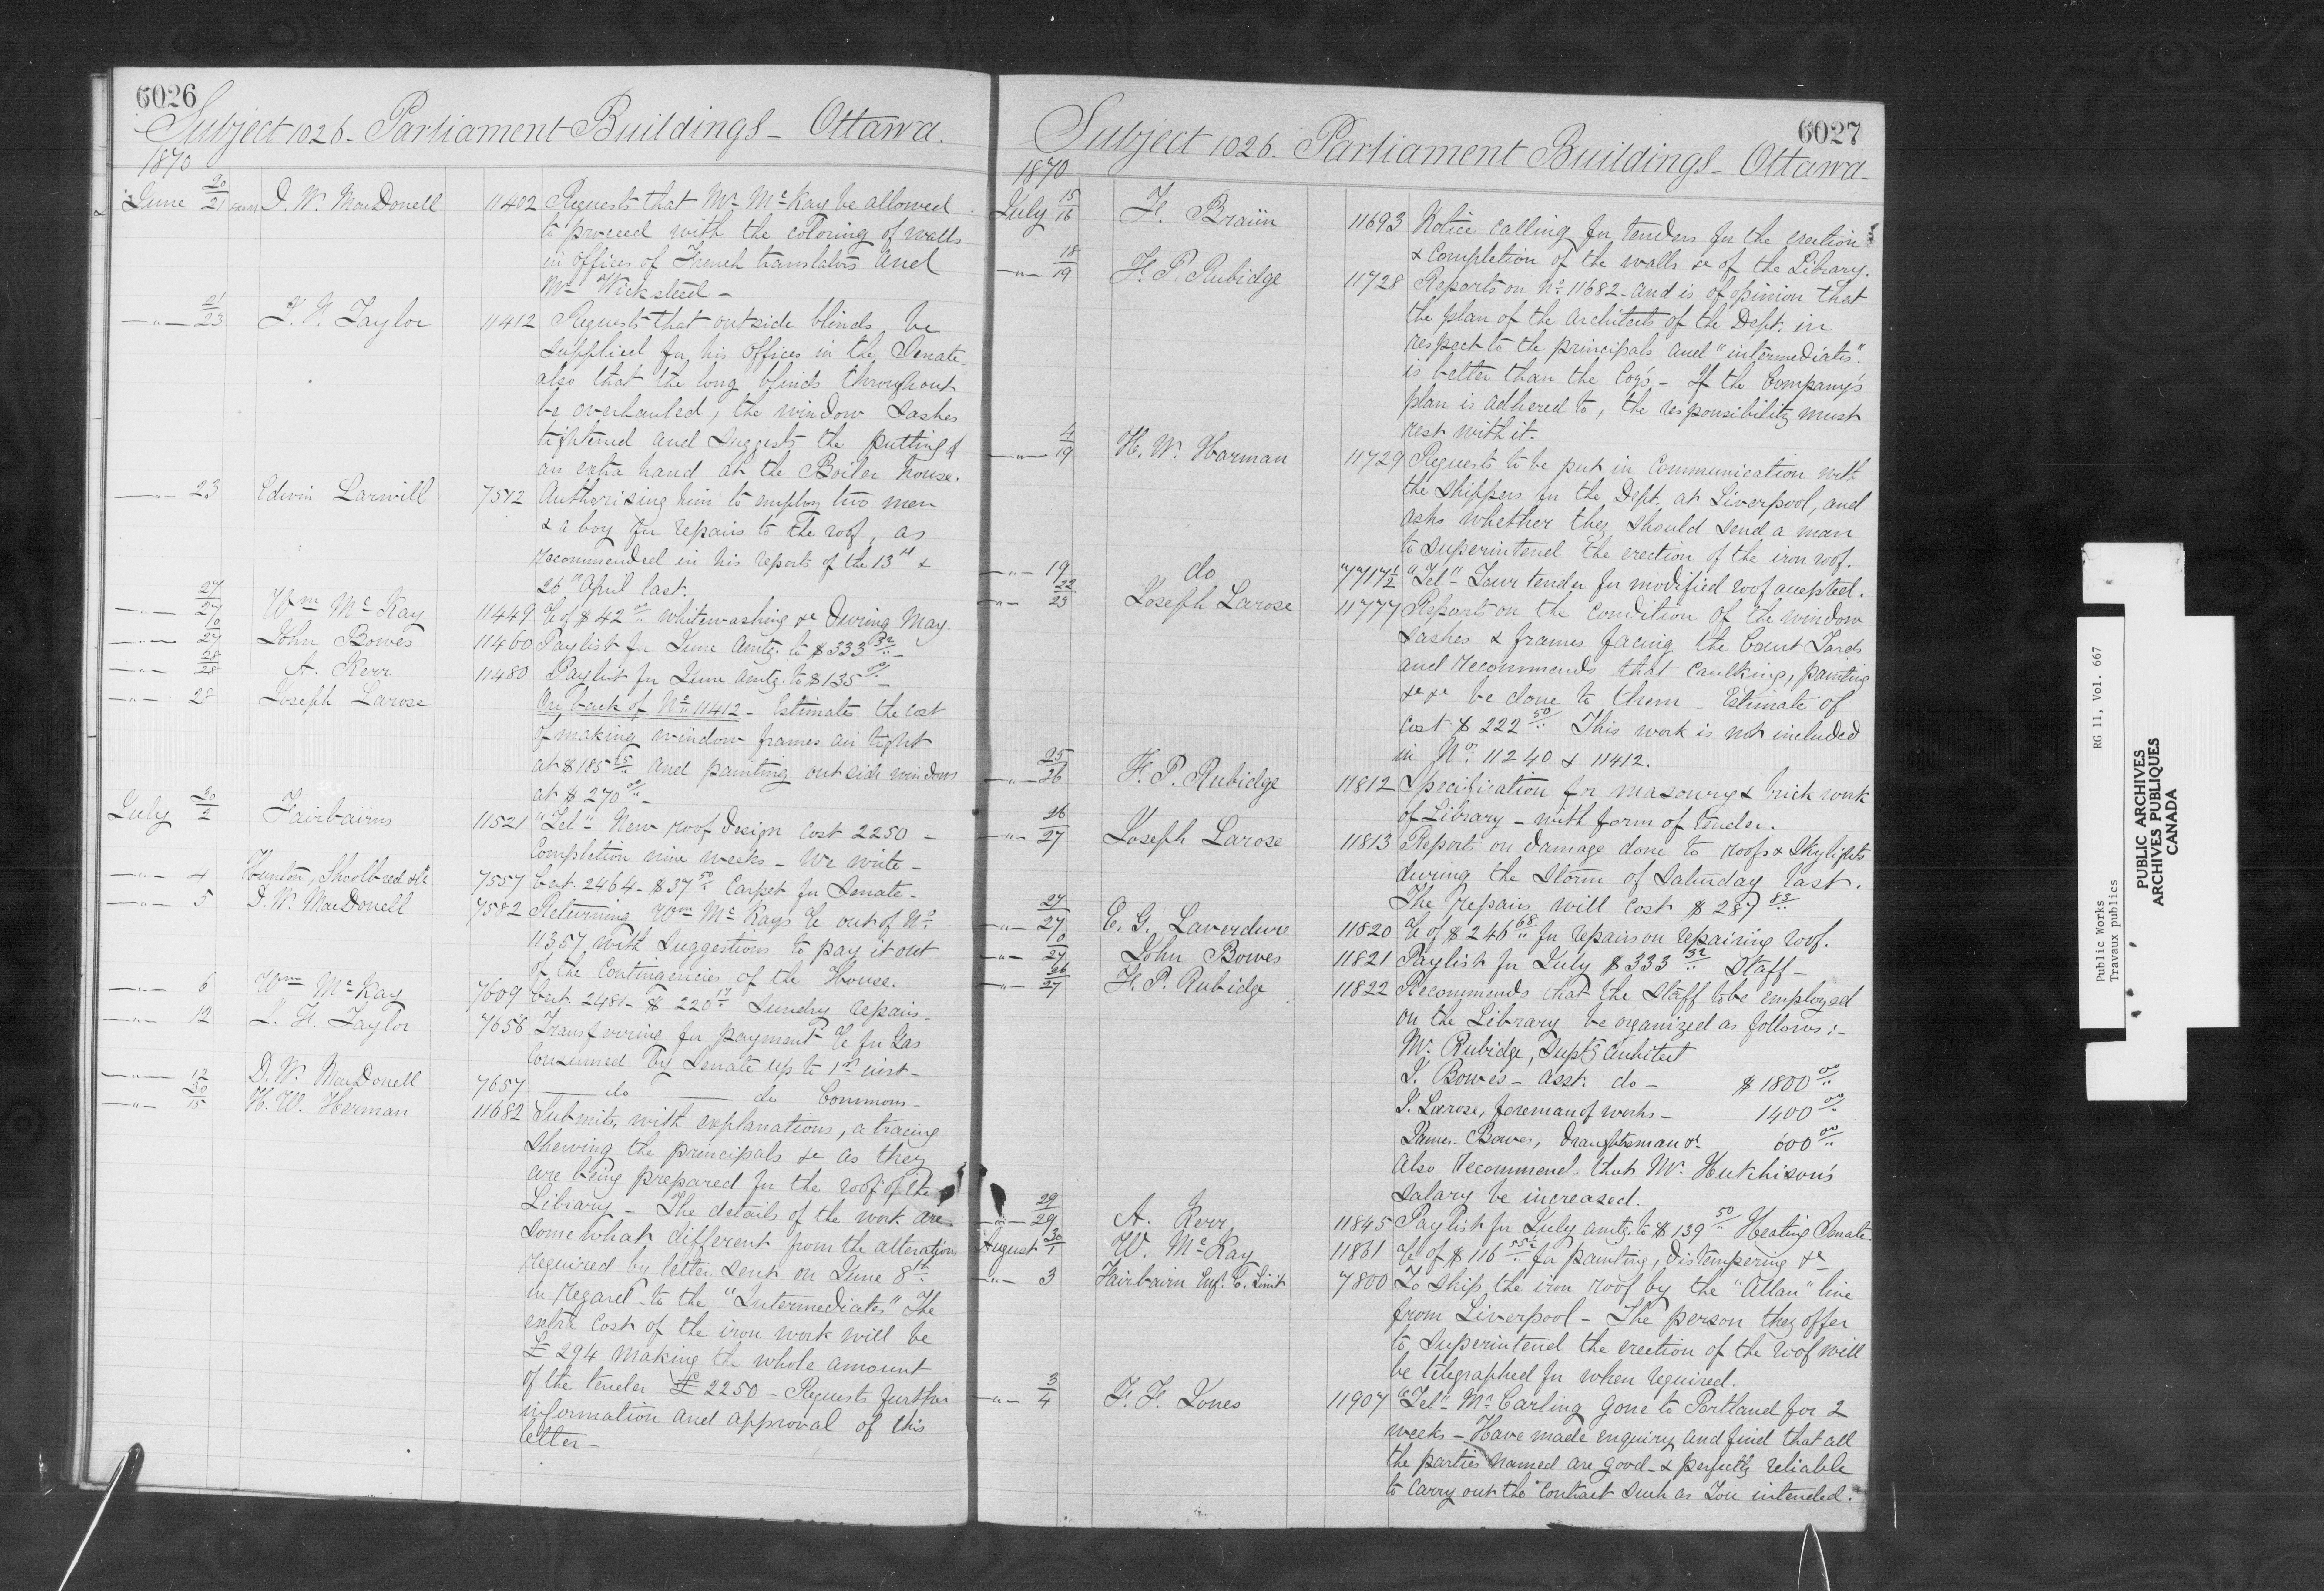 6026
Subject 1026 - Parliament Buildings - Ottawa.
1870
June 20/21 D. W. MacDonell 11402 Requests that Mr. McKay be allowed
to proceed with the coloring of walls
in offices of French translators and
Mr Wicksteed -
-"- 21/23 J. F. Taylor 11412 Requests that outside blinds be
supplied for his offices in the Senate
also that the long blinds throughout
be overhauled, the window sashes
tightened and suggests the putting of
an extra hand at the Boiler house.
-"- 23 Edwin Larwill 7512 Authorising him to employ two men
& a boy for repairs to the roof, as
recommended in his reports of the 13th &
26th April last.
-"- 27/27 Wm McKay 11449 of $42 whitewashing &c During May.
-"- 0/27 John Bowes 11460 Paylist for June amtg. to $333 32 -
-"- 28/28 A. Kerr 11480 Paylist for June amtg. to $135 00 -
-"- 28 Joseph Larose On back of No 11412 - Estimates the cost
of making window frames air tight
at $185 and painting outside windows
at $270 00 -
July 30/2 Fairbairns 11521 "Tel" New roof design cost 2250 -
Completion nine weeks - We write -
-"- 4 Hunton, Shoolbred & Co 7557 Cert. 2464 - $37 50 Carpet for Senate -
-"- 5 D. W. MacDonell 7582 Returning Wm McKays out of No
11357 with suggestions to pay it out
of the Contingencies of the House.
-"- 6 Wm McKay 7609 Cert. 2481 - $220 17 Sundry repairs -
-"- 12 J. F. Taylor 7656 Transferring for payment for Gas
Consumed by Senate up to 1st inst -
-"- 12 D. W. MacDonell 7657 - do - do Commons -
-"- 30/15 H. W. Herman 11682 Submits, with explanations, a tracing
shewing the principals &c as they
are being prepared for the roof of the
Library - The details of the work are
somewhat different from the alteration
required by letter sent on June 8th
in regard to the "Intermediates" The
extra cost of the iron work will be
£294 making the whole amount
of the tender £2250 - Requests further
information and approval of this
letter -
6027
Subject 1026. Parliament Buildings - Ottawa -
1870
July 15/16 F. Braün 11693 Notice calling for tenders for the erection
& completion of the walls &c of the Library.
-"- 18/19 F. P. Rubidge 11728 Reports on No 11682 - and is of opinion that
the plan of the architects of the Dept. in
respect to the principals and "intermediates"
is better than the Coy's - If the Company's
plan is adhered to, the responsibility must
rest with it.
-"- 4/19 H. W. Harman 11729 Requests to be put in communication with
the shippers for the Dept. at Liverpool, and
asks whether they should send a man
to superintend the erection of the iron roof.
-"- 19 do 7717½ "Tel" Your tender for modified roof accepted.
-"- 22/23 Joseph Larose 11777 Reports on the condition of the window
sashes & frames facing the Court Yards
and recommends that caulking, painting
&c &c be done to them - Estimate of
cost $222 50 This work is not included
in No. 11240 & 11412.
-"- 25/26 F. P. Rubidge 11812 Specification for masonry & brick work
of Library - with form of tender.
-"- 26/27 Joseph Larose 11813 Reports on damage done to roofs & Skylights
during the storm of Saturday last.
The repairs will cost $287 83
-"- 27/27 E. G. Laverdure 11820 of $246 68 for repairs on repairing roof.
-"- 0/27 John Bowes 11821 Paylist for July $333 32 Staff -
-"- 26/27 F. P. Rubidge 11822 Recommends that the Staff to be employed
on the Library be organized as follows: -
Mr. Rubidge, Suptg architect
J. Bowes - asst. do - $1800 00
J. Larose, foreman of works - 1400 00
James Bowes, Draughtsman &c 600 00
Also recommends that Mr. Hutchison's
salary be increased.
-"- 29/29 A. Kerr 11845 Paylist for July amtg. to $139 50 Heating Senate
August 30/1 W. McKay 11861 of $116 55½ for painting, distempering &c
-"- 3 Fairbairn Eng. C. Limit 7800 To ship the iron roof by the "Allan" line
from Liverpool - The person they offer
to superintend the erection of the roof will
be telegraphed for when required.
-"- 3/4 F. F. Jones 11907 "Tel" Mr Carling gone to Portland for 2
weeks - Have made enquiry and find that all
the parties named are good - & perfectly reliable
to carry out the contract such as You intended.
Public Works RG 11, Vol. 667
Travaux publics
PUBLIC ARCHIVES
ARCHIVES PUBLIQUES
CANADA